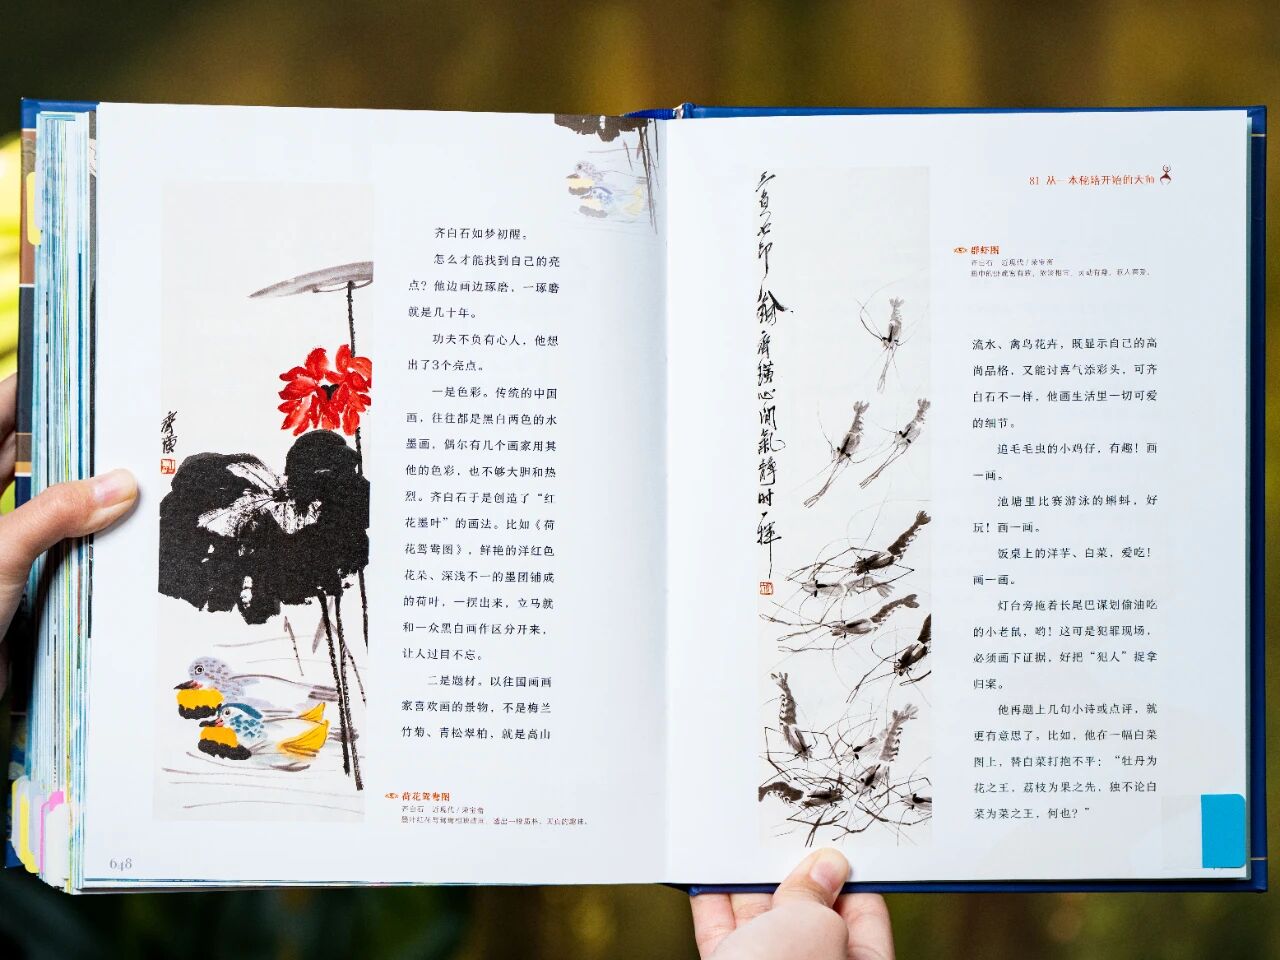 齐白石如梦初醒。
怎么才能找到自己的亮
点？他边画边琢磨，一琢磨
就是几十年。
功夫不负有心人，他想
出了3个亮点。
一是色彩。传统的中国
画，往往都是黑白两色的水
墨画，偶尔有几个画家用其
他的色彩，也不够大胆和热
烈。齐白石于是创造了“红
花墨叶”的画法。比如《荷
花鸳鸯图》，鲜艳的洋红色
花朵、深浅不一的墨团铺成
的荷叶，一摆出来，立马就
和一众黑白画作区分开来，
让人过目不忘。
二是题材。以往国画画
家喜欢画的景物，不是梅兰
竹菊、青松翠柏，就是高山
荷花鸳鸯图
齐白石 近现代/荣宝斋
648
三百石印
齐璜心闲气静时一挥
81 从一本秘籍开始的大师
群虾图
齐白石 近现代/荣宝斋
流水、禽鸟花卉，既显示自己的高
尚品格，又能讨喜气添彩头，可齐
白石不一样，他画生活里一切可爱
的细节。
追毛毛虫的小鸡仔，有趣！画
一画。
池塘里比赛游泳的蝌蚪，好
玩！画一画。
饭桌上的洋芋、白菜，爱吃！
画一画。
灯台旁拖着长尾巴谋划偷油吃
的小老鼠，哟！这可是犯罪现场，
必须画下证据，好把“犯人”捉拿
归案。
他再题上几句小诗或点评，就
更有意思了。比如，他在一幅白菜
图上，替白菜打抱不平：“牡丹为
花之王，荔枝为果之先，独不论白
菜为菜之王，何也？”